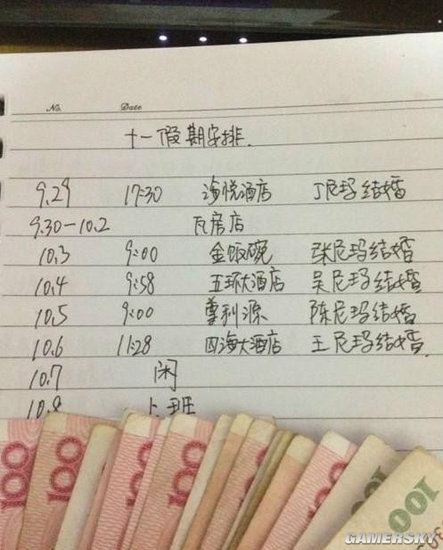 No. Date
十一假期安排.
9.29 17:30 海悦酒店 丁尼玛结婚
9.30-10.2 瓦房店
10.3 9:00 金饭碗 张尼玛结婚
10.4 9:58 五环大酒店 吴尼玛结婚
10.5 9:00 尊利源 陈尼玛结婚
10.6 11:28 四海大酒店 王尼玛结婚.
10.7 闲
10.8 上班
100 100 100 100
GAMERSKY